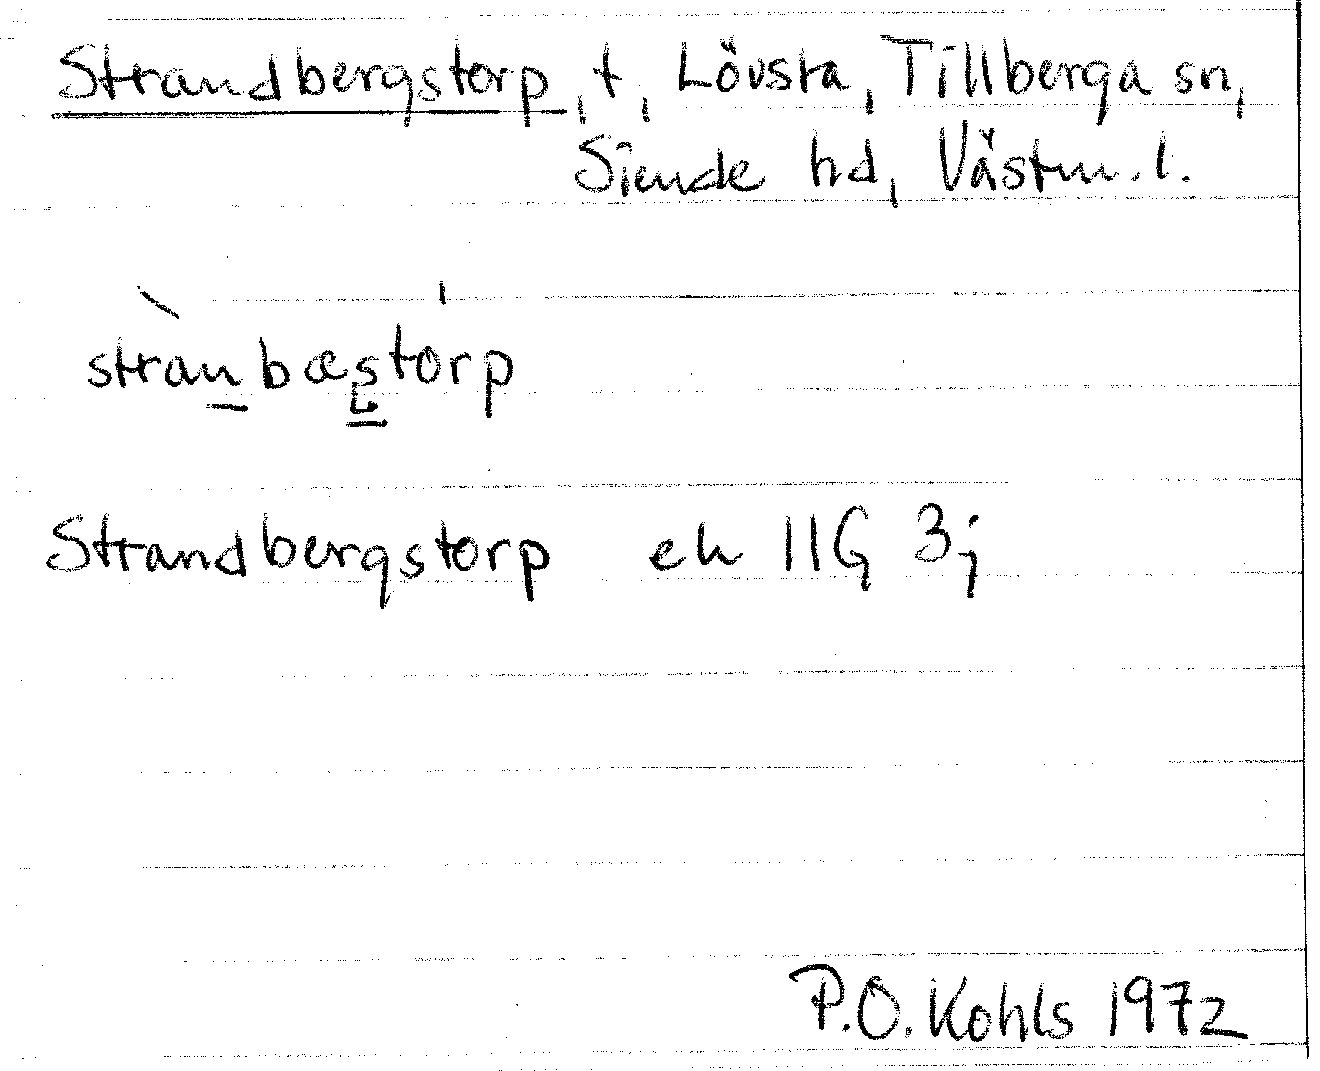 Strandbergstorp, t, Lövsta, Tillberga sn,
Siende hd, Västm. l.
stra̱nbæʂ̱torp
Strandbergstorp ek 11G 3j
P.O. Kohls 1972